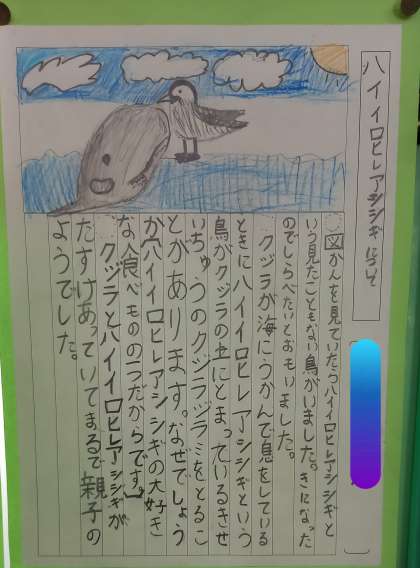 ハイイロヒレアシシギについて
図かんを見ていたらハイイロヒレアシシギと
いう見たこともない鳥がいました。きになった
のでしらべたいとおもいました。
クジラが海にうかんで息をしている
ときにハイイロヒレアシシギという
鳥がクジラの上にとまっているきせ
いちゅうのクジラジラミをとるこ
とがあります。なぜでしょう
か穴イイロヒレアシシギの大好き
な食べものの一つだからです。
クジラとハイイロヒレアシシギが
たすけあっていてまるで親子の
ようでした。